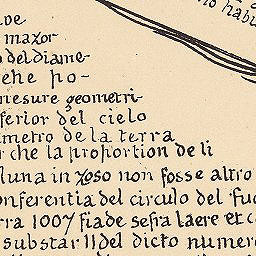 no habu
ve
mazor
o del diame-
ehe po-
mesure geometri-
ferior del cielo
metro de la terra
r che la proportion de li
luna in zoso non fosse altro
onferentia del circulo del fuo
rra 1007 fiade sefra laere et c
substar 11 del dicto numero